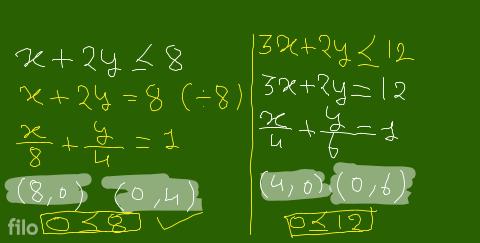 x + 2y ≤ 8
x + 2y = 8 (÷8)
x/8 + y/4 = 1
(8,0) (0,4)
0 ≤ 8 ✓
3x + 2y ≤ 12
3x + 2y = 12
x/4 + y/6 = 1
(4,0) (0,6)
0 ≤ 12
filo